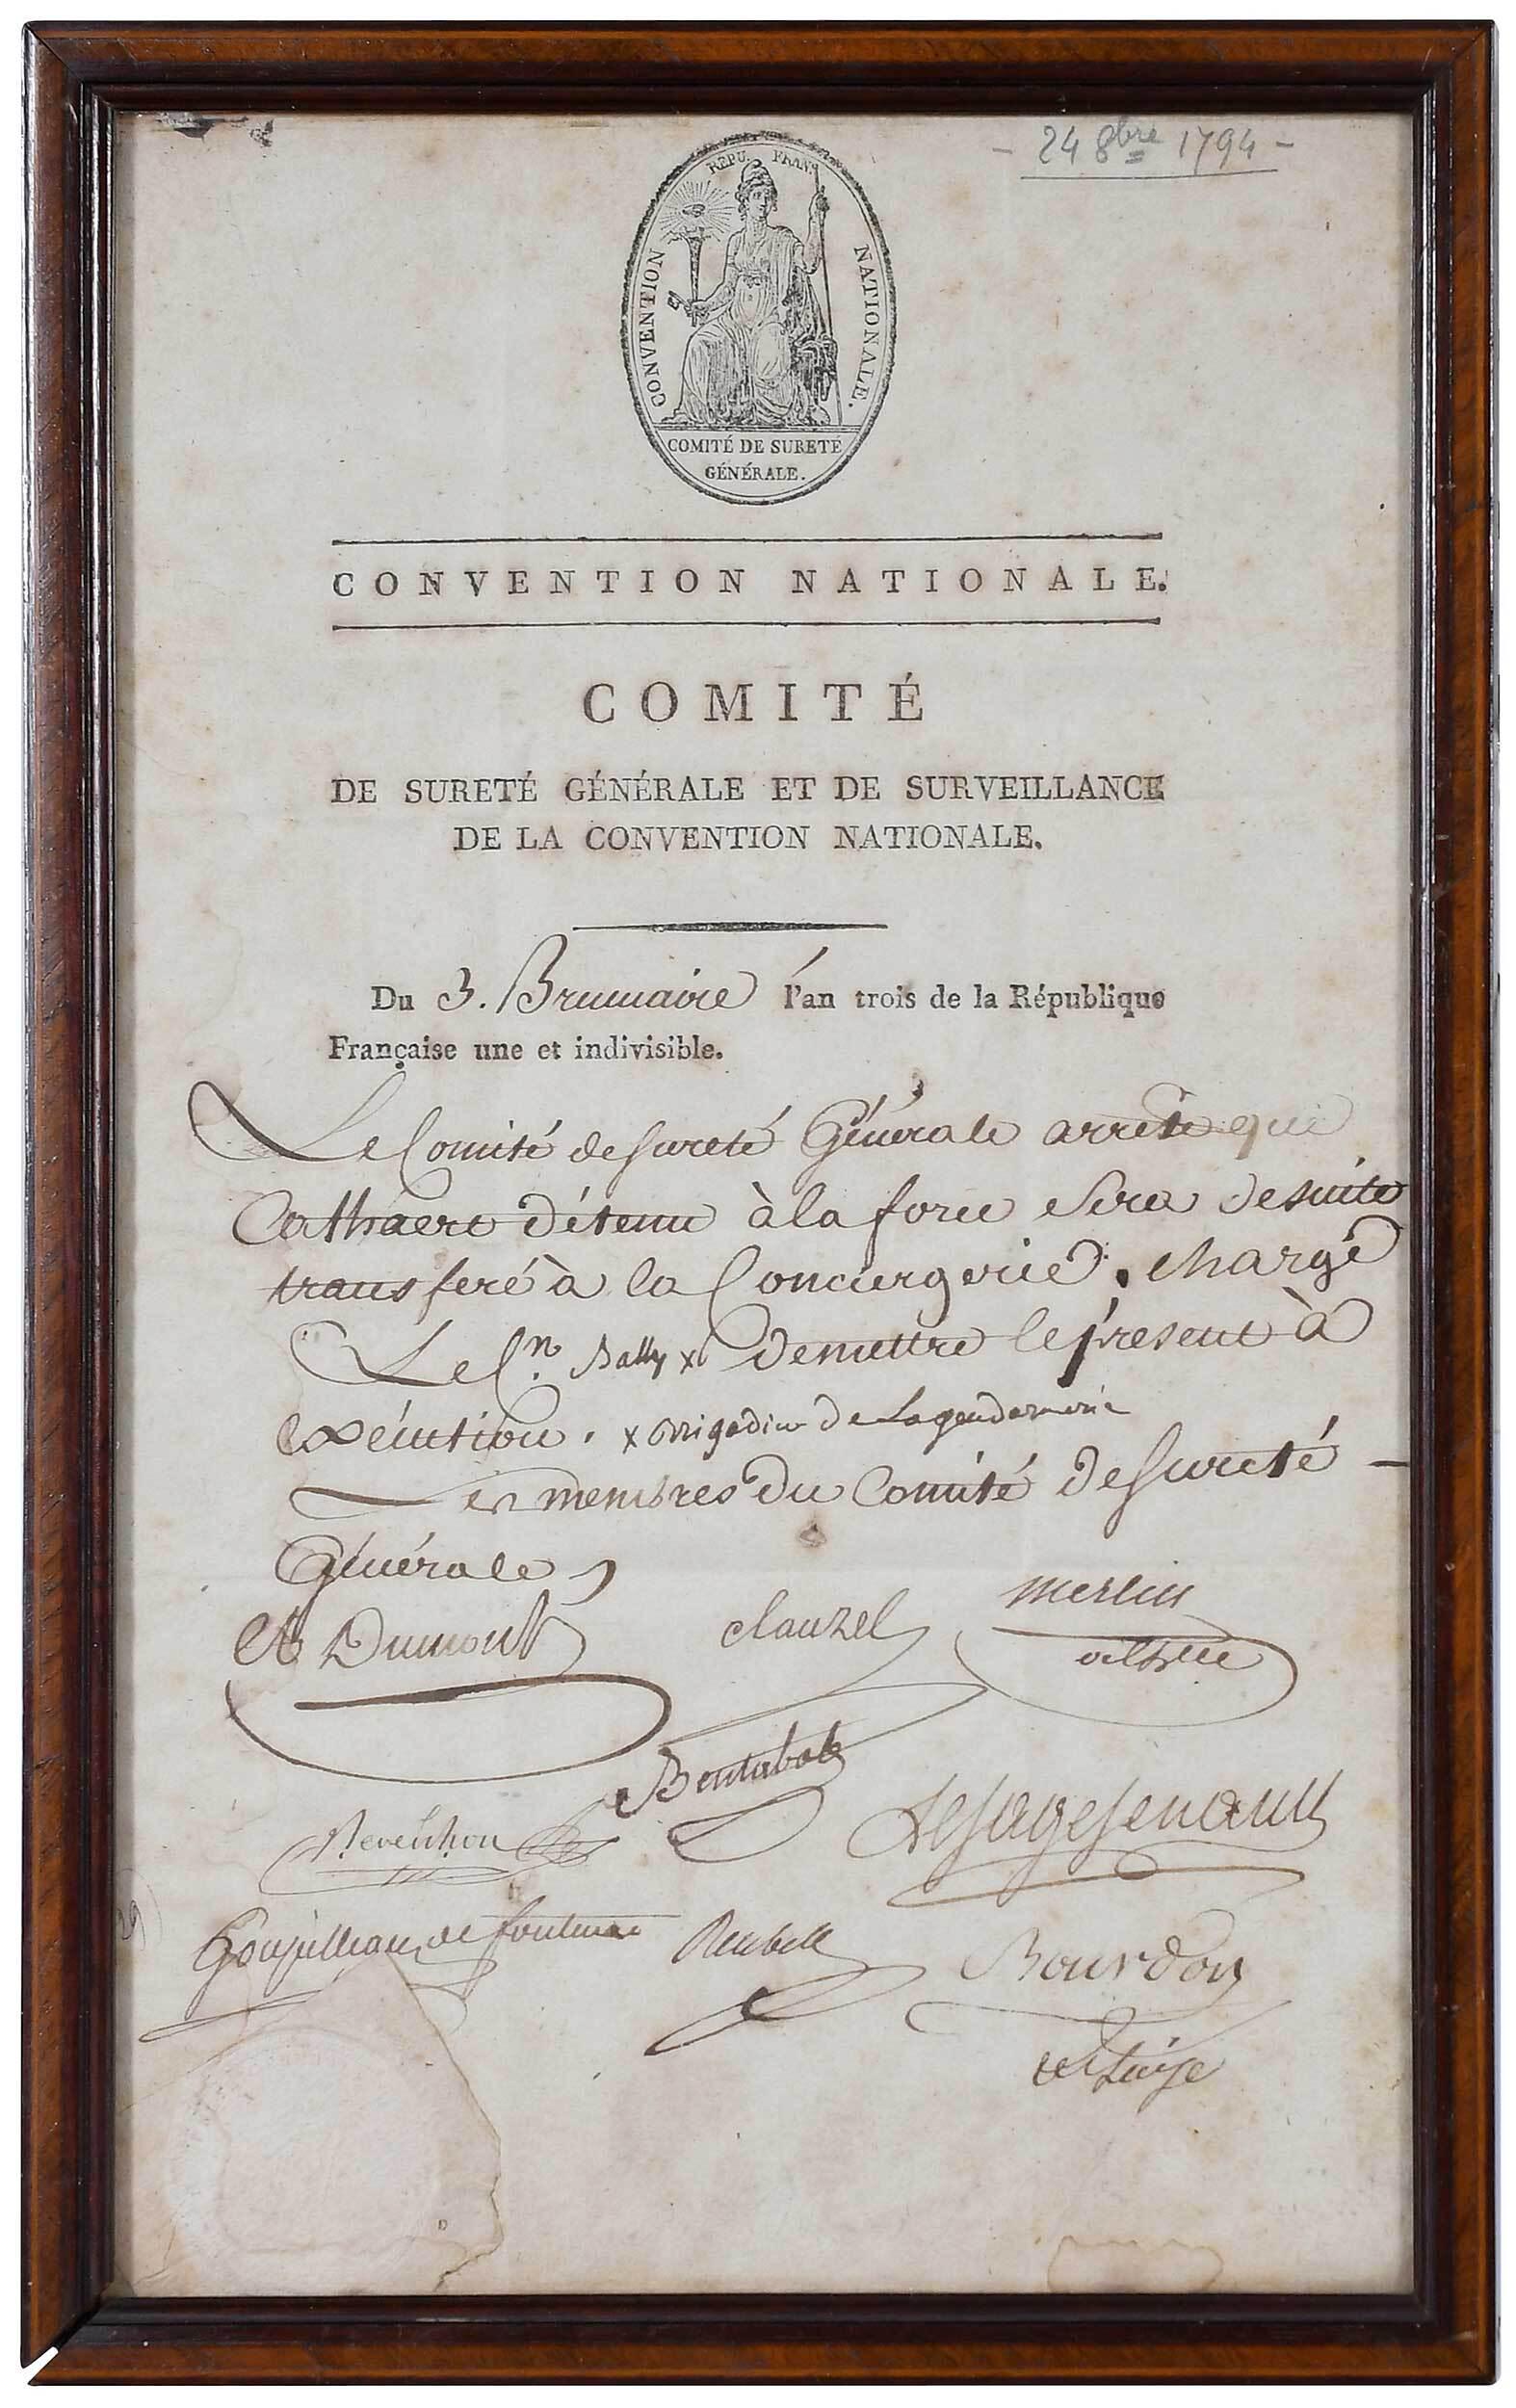 - 24 8bre 1794 -
REPU. FRANÇ
CONVENTION NATIONALE.
COMITÉ DE SURETÉ
GÉNÉRALE.
CONVENTION NATIONALE.
COMITÉ
DE SURETÉ GÉNÉRALE ET DE SURVEILLANCE
DE LA CONVENTION NATIONALE.
Du 3. Brumaire l'an trois de la République
Française une et indivisible.
Le Comité de sureté Générale arrête que
détenu à la force sera de suite
transferé à la Conciergerie. chargé
Le Cn. Bally x de mettre le présent à
exécution. x brigadier de la gendarmerie
Les membres du Comité de sureté
Générale
A Dumont clauzel merlin
Bentabole
Reverchon Lesage Senault
Goupilleau de fontenai Reubell Bourdon
de l'oise